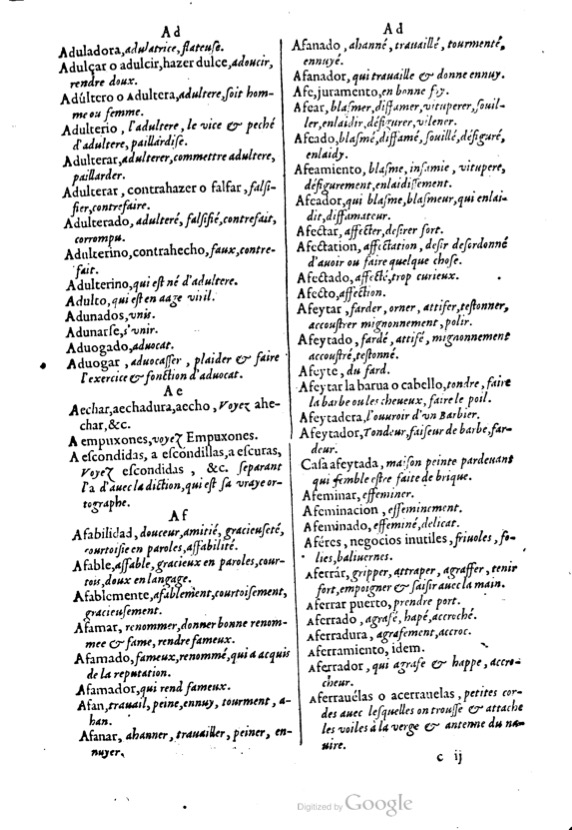 Ad
Aduladora, adulatrice, flateuse.
Adulçar o adulcir, hazer dulce, adoucir,
rendre doux.
Adúltero o Adultera, adultere, soit hom-
me ou femme.
Adulterio , l'adultere, le vice & peché
d'adultere, paillardise.
Adulterar, adulterer, commettre adultere,
paillarder.
Adulterar, contrahazer o falsar, falsi-
fier, contrefaire.
Adulterado, adulteré, falsifié, contrefait,
corrompu.
Adulterino, contrahecho, faux, contre-
fait.
Adulterino, qui est né d'adultere.
Adulto, qui est en aage viril.
Adunados, unis.
Adunarse, s'unir.
Aduogado, aduocat.
Aduogar, aduocasser, plaider & faire
l'exercice & fonction d'aduocat.
Ae
Aechar, aechadura, aecho, Voyez ahe-
char, &c.
A empuxones, voyez Empuxones.
A escondidas, a escondillas, a escuras,
Voyez escondidas , &c. separant
l'a d'auec la diction, qui est sa vraye or-
tographe.
Af
Afabilidad, douceur, amitié, gracieuseté,
courtoisie en paroles, affabilité.
Afable, affable, gracieux en paroles, cour-
tois, doux en langage.
Afablemente, afablement, courtoisement,
gracieusement.
Afamar, renommer, donner bonne renom-
mee & fame, rendre fameux.
Afamado, fameux, renommé, qui a acquis
de la reputation.
Afamador, qui rend fameux.
Afan, trauail, peine, ennuy, tourment, a-
han.
Afanar, ahanner, trauailler, peiner, en-
nuyer.
Ad
Afanado , ahanné, trauaillé, tourmenté,
ennuyé.
Afanador, qui trauaille & donne ennuy.
Afe, juramento, en bonne foy.
Afear, blasmer, diffamer, vituperer, souil-
ler, enlaidir, défigurer, vilener.
Afeado, blasmé, diffamé, souillé, défiguré,
enlaidy.
Afeamiento, blasme, infamie, vitupere,
défigurement, enlaidissement.
Afeador, qui blasme, blasmeur, qui enlai-
dit, diffamateur.
Afectar, affecter, desirer fort.
Afectation, affectation, desir desordonné
d'auoir ou faire quelque chose.
Afectado, affecté, trop curieux.
Afecto, affection.
Afeytar, farder, orner, attifer, testonner,
accoustrer mignonnement, polir.
Afeytado, fardé, attifé, mignonnement
accoustré, testonné.
Afeyte, du fard.
Afeytar la barua o cabello, tondre, faire
la barbe ou les cheueux, faire le poil.
Afeytadera, l'ouuroir d'un Barbier.
Afeytador, Tondeur, faiseur de barbe, far-
deur.
Casa afeytada, maison peinte pardeuant
qui semble estre faite de brique.
Afeminar, effeminer.
Afeminacion, effeminement.
Afeminado, effeminé, delicat.
Aféres, negocios inutiles, friuoles, fo-
lies, baliuernes.
Aferrar, gripper, attraper, agraffer, tenir
fort, empoigner & saisir auec la main.
Aferrar puerto, prendre port.
Aferrado, agrafé, hapé, accroché.
Aferradura, agrafement, accroc.
Aferramiento, idem.
Aferrador, qui agrafe & happe, accro-
cheur.
Aferrauelas o acerrauelas, petites cor-
des auec lesquelles on trousse & attache
les voiles à la verge & antenne du na-
uire.
c ij
Digitized by Google